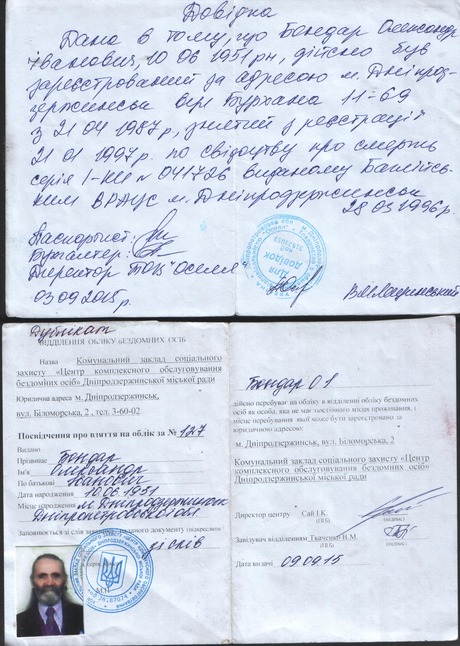 Довідка
Дана в тому, що Бондар Олександр
Іванович, 10 06 1951 рн, дійсно був
зареєстрований за адресою м. Дніпрод-
зержинськ вул Бурхана 11-69
з 21 04 1987 р, знятий з реєстрації
21 01 1997 р. по свідоцтву про смерть
серія І-КИ № 041726 виданому Баглійсь-
ким ВРАЦС м. Дніпродзержинськ
28 03 1996 р.
Паспортист:
Бухгалтер:
Директор ТОЦ "Оселя"
03 09 2015 р.
Для довідок
Дублікат
ВІДДІЛЕННЯ ОБЛІКУ БЕЗДОМНИХ ОСІБ
Назва Комунальний заклад соціального
захисту «Центр комплексного обслуговування
бездомних осіб» Дніпродзержинської міської ради
Юридична адреса м. Дніпродзержинськ,
вул. Біломорська, 2 , тел. 3-60-02
Посвідчення про взяття на облік за № 127
Видано
Прізвище Бондар
Ім'я Олександр
По батькові Іванович
Дата народження 10.06.1951
Місце народження м Дніпродзержинськ
Дніпропетровської обл
Заповнюється зі слів
зі слів
Бондар О І
дійсно перебуває на обліку в відділенні обліку бездомних
осіб як особа, яка не має постійного місця проживання, і
місце перебування якої може бути зареєстровано за
юридичною адресою:
м. Дніпродзержинськ, вул. Біломорська, 2
Комунальний заклад соціального захисту «Центр
комплексного обслуговування бездомних осіб»
Дніпродзержинської міської ради
Директор центру Сай І.К.
(П.І.Б) (підпис)
Завідувач відділенням Ткаченко Н.М.
(П.І.Б) (підпис)
Дата видачі 09.09.15